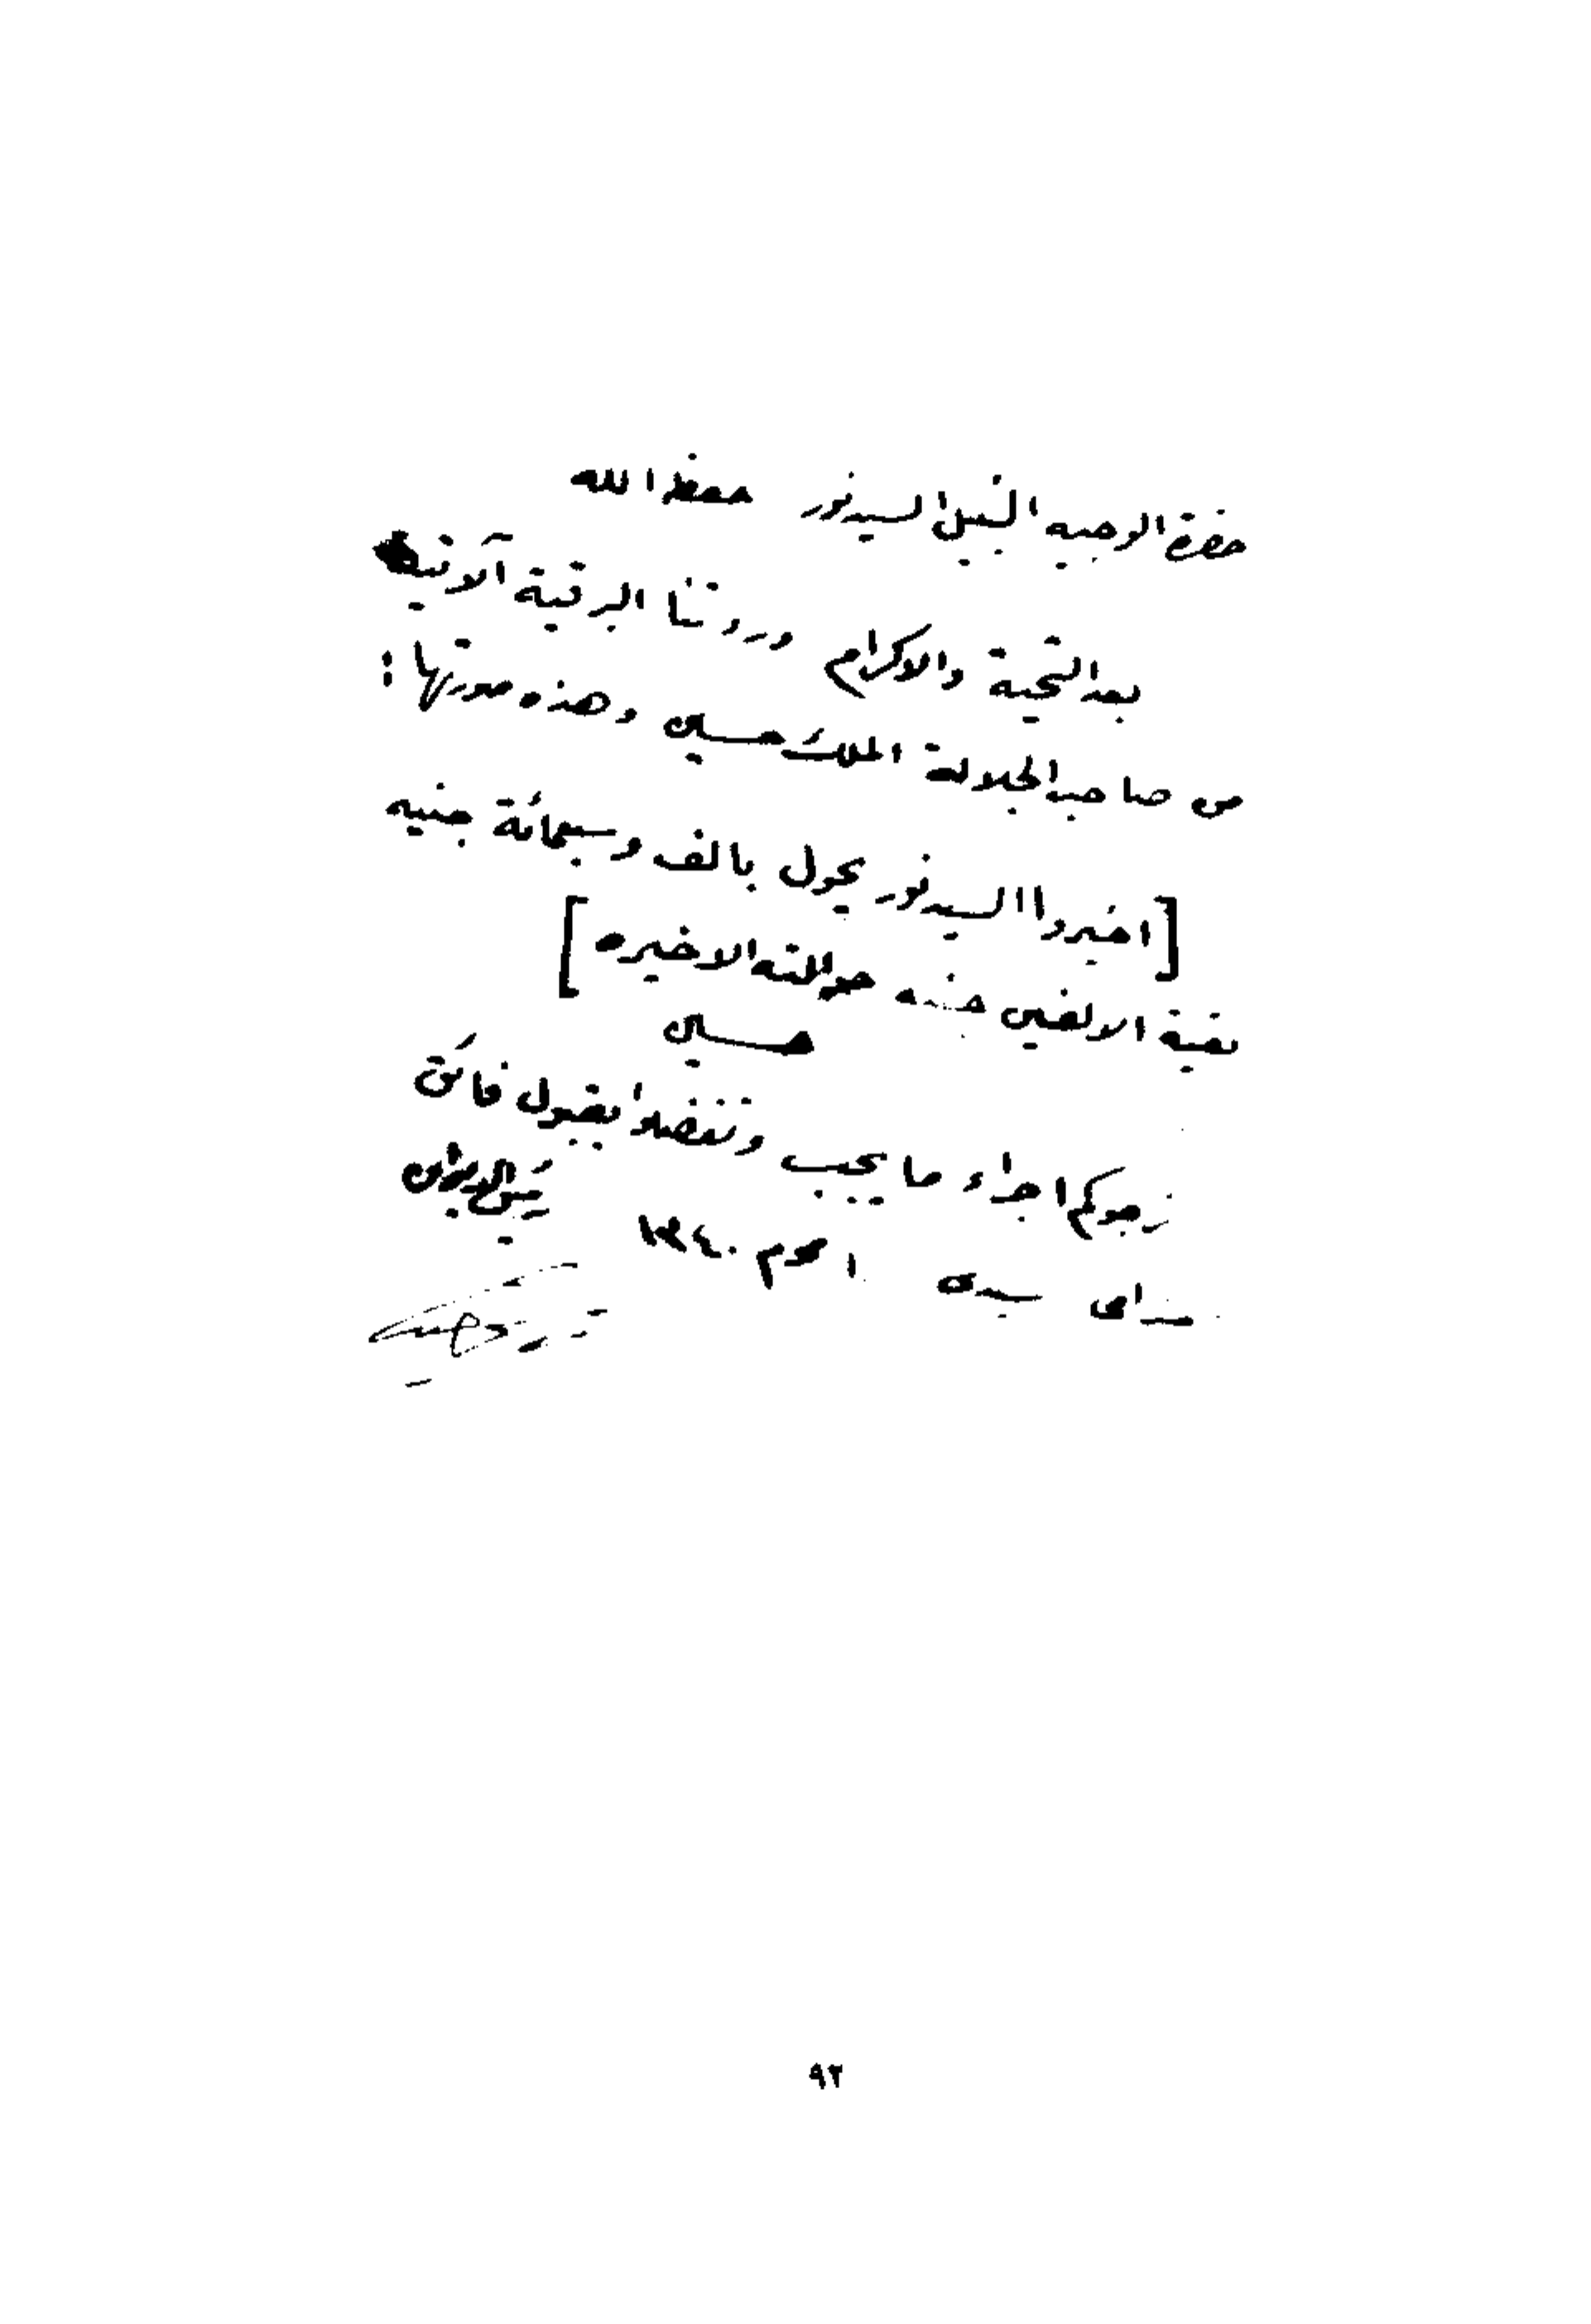 حضرة الوجيه النبيل السيد نور حفظه الله
بعد التحية والاكرام وردتنا البرقية الآتية
من صاحب الجلالة الملك حسين وهذه صورتها :
[ اخبروا السيد نور يحول بالف وسبعمائة جنيه
بقية الالفين جنيه حوالته الاخيره ]
حسين
نرجوكم اجراء ما يجب وتفضلوا بقبول فائق
احترامي سيدي ١ محرم ١٣٤٠
رئيس الديوان
٩٢